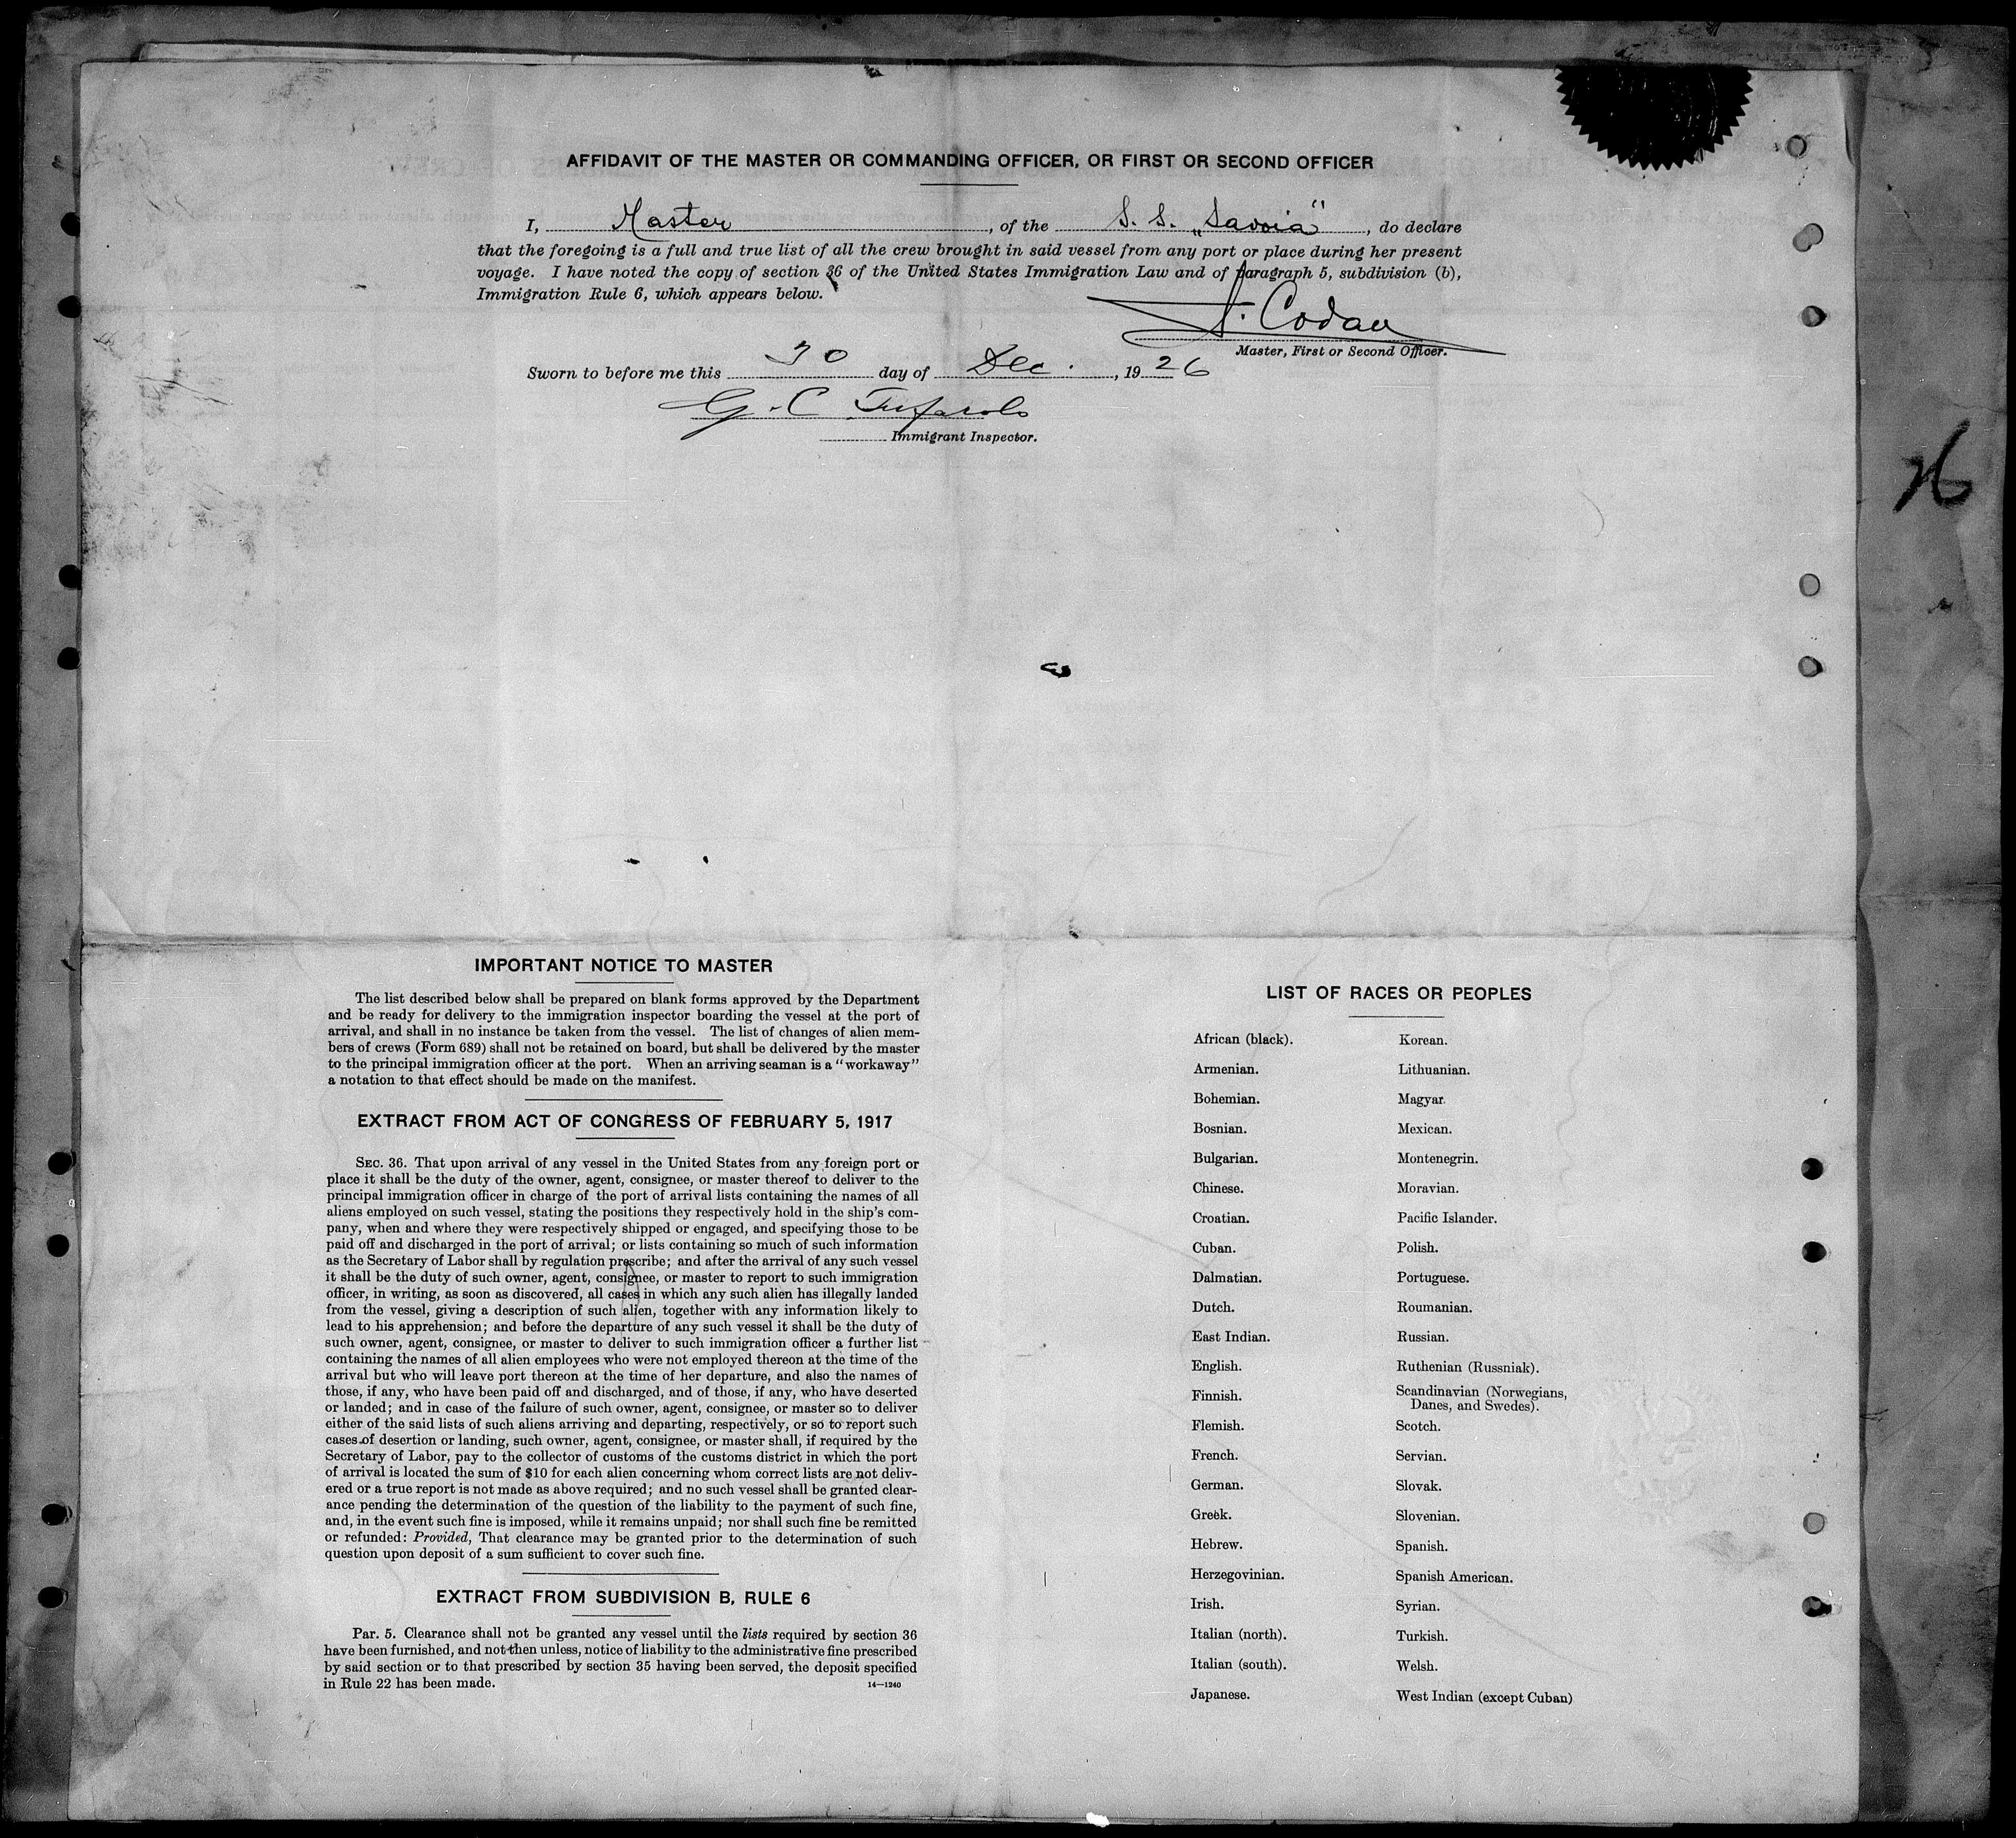 AFFIDAVIT OF THE MASTER OR COMMANDING OFFICER, OR FIRST OR SECOND OFFICER
I, Master, of the S. S. „Savoia", do declare
that the foregoing is a full and true list of all the crew brought in said vessel from any port or place during her present
voyage. I have noted the copy of section 36 of the United States Immigration Law and of paragraph 5, subdivision (b),
Immigration Rule 6, which appears below.
Codau
Master, First or Second Officer.
Sworn to before me this 30 day of Dec., 1926
G. C
Immigrant Inspector.
26
IMPORTANT NOTICE TO MASTER
The list described below shall be prepared on blank forms approved by the Department
and be ready for delivery to the immigration inspector boarding the vessel at the port of
arrival, and shall in no instance be taken from the vessel. The list of changes of alien mem-
bers of crews (Form 689) shall not be retained on board, but shall be delivered by the master
to the principal immigration officer at the port. When an arriving seaman is a "workaway"
a notation to that effect should be made on the manifest.
EXTRACT FROM ACT OF CONGRESS OF FEBRUARY 5, 1917
SEC. 36. That upon arrival of any vessel in the United States from any foreign port or
place it shall be the duty of the owner, agent, consignee, or master thereof to deliver to the
principal immigration officer in charge of the port of arrival lists containing the names of all
aliens employed on such vessel, stating the positions they respectively hold in the ship's com-
pany, when and where they were respectively shipped or engaged, and specifying those to be
paid off and discharged in the port of arrival; or lists containing so much of such information
as the Secretary of Labor shall by regulation prescribe; and after the arrival of any such vessel
it shall be the duty of such owner, agent, consignee, or master to report to such immigration
officer, in writing, as soon as discovered, all cases in which any such alien has illegally landed
from the vessel, giving a description of such alien, together with any information likely to
lead to his apprehension; and before the departure of any such vessel it shall be the duty of
such owner, agent, consignee, or master to deliver to such immigration officer a further list
containing the names of all alien employees who were not employed thereon at the time of the
arrival but who will leave port thereon at the time of her departure, and also the names of
those, if any, who have been paid off and discharged, and of those, if any, who have deserted
or landed; and in case of the failure of such owner, agent, consignee, or master so to deliver
either of the said lists of such aliens arriving and departing, respectively, or so to report such
cases of desertion or landing, such owner, agent, consignee, or master shall, if required by the
Secretary of Labor, pay to the collector of customs of the customs district in which the port
of arrival is located the sum of $10 for each alien concerning whom correct lists are not deliv-
ered or a true report is not made as above required; and no such vessel shall be granted clear-
ance pending the determination of the question of the liability to the payment of such fine,
and, in the event such fine is imposed, while it remains unpaid; nor shall such fine be remitted
or refunded: Provided, That clearance may be granted prior to the determination of such
question upon deposit of a sum sufficient to cover such fine.
EXTRACT FROM SUBDIVISION B, RULE 6
Par. 5. Clearance shall not be granted any vessel until the lists required by section 36
have been furnished, and not then unless, notice of liability to the administrative fine prescribed
by said section or to that prescribed by section 35 having been served, the deposit specified
in Rule 22 has been made.
14—1240
LIST OF RACES OR PEOPLES
African (black).
Armenian.
Bohemian.
Bosnian.
Bulgarian.
Chinese.
Croatian.
Cuban.
Dalmatian.
Dutch.
East Indian.
English.
Finnish.
Flemish.
French.
German.
Greek.
Hebrew.
Herzegovinian.
Irish.
Italian (north).
Italian (south).
Japanese.
Korean.
Lithuanian.
Magyar.
Mexican.
Montenegrin.
Moravian.
Pacific Islander.
Polish.
Portuguese.
Roumanian.
Russian.
Ruthenian (Russniak).
Scandinavian (Norwegians,
Danes, and Swedes).
Scotch.
Servian.
Slovak.
Slovenian.
Spanish.
Spanish American.
Syrian.
Turkish.
Welsh.
West Indian (except Cuban)